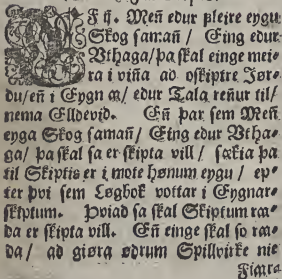 EF ij. Meñ edur pleire eygu
Skog saman / Eing edur
Vthaga / þa skal einge mei-
ra i viña ad oskiptre Jør-
du / eñ i Eygn a / edur Tala reñur til /
nema Elldevid. Eñ þar sem Meñ
eyga Skog samañ / Eing edur Vtha-
ga / þa skal sa er skipta vill / sækia þa
til Skiptis er i mote hønum eygu / ep-
ter þvi sem Løgbok vottar i Eygnar-
skiptum. Þviad sa skal Skiptum ra-
da er skipta vill. Eñ einge skal so ræ-
da / ad giøra ødrum Spillvirke nie
Fiarra